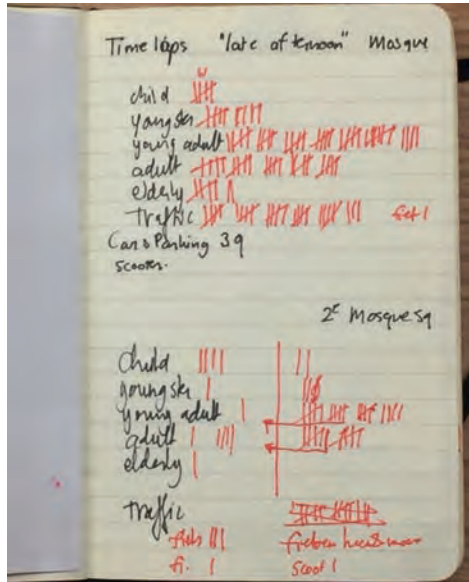 Time laps "late afternoon" Mosque
child
youngster
young adult
adult
elderly
traffic
Cars Parking 39
scooter.
2e Mosque sq
child
youngster
young adult
adult
elderly
traffic
scoot 1